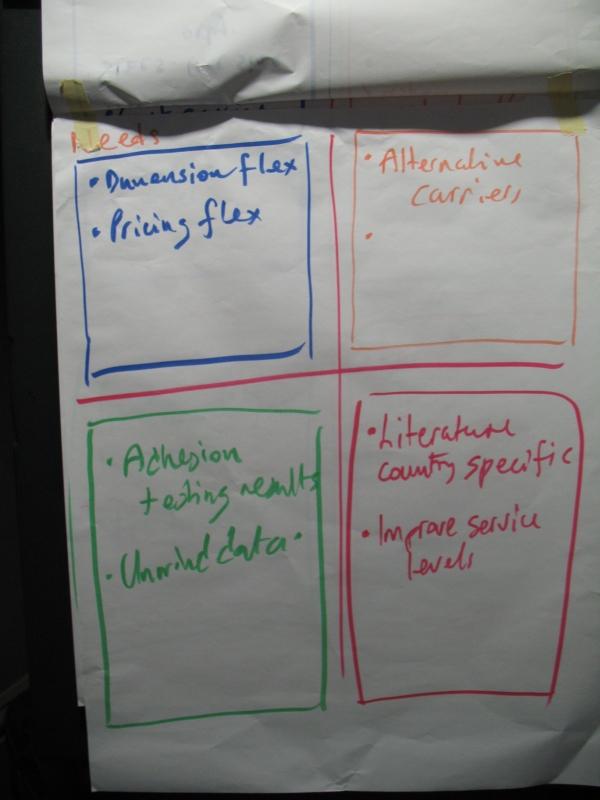 Needs
• Dimension flex
• Pricing flex
• Alternative
carriers
•
• Adhesion
testing results
• Unwind data •
• Literature
country specific
• Improve service
levels